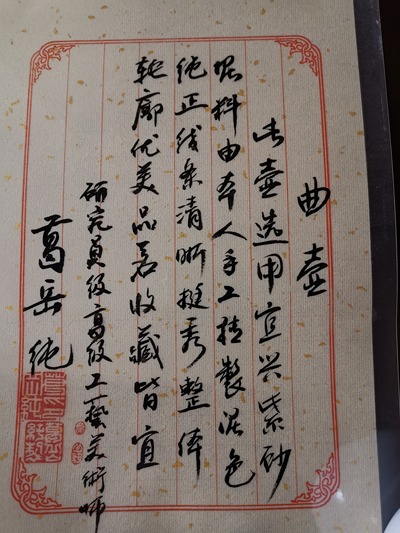 曲壶
此壶选用宜兴紫砂
泥料由本人手工精製泥色
纯正线条清晰挺秀整体
轮廓优美品茗收藏皆宜
研究员级高级工藝美術师
葛岳纯